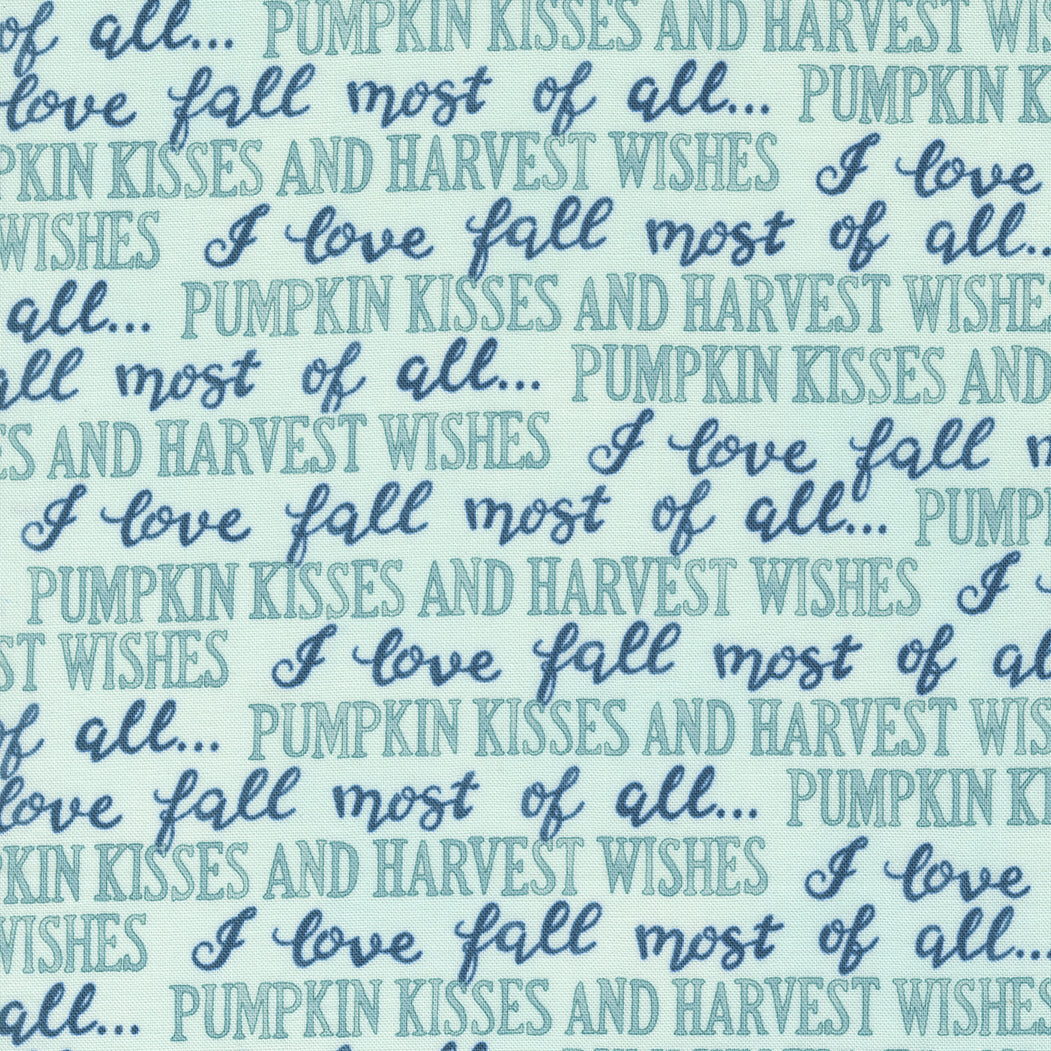 of all... PUMPKIN KISSES AND HARVEST WIS
love fall most of all... PUMPKIN K
PKIN KISSES AND HARVEST WISHES I love
WISHES I love fall most of all...
all... PUMPKIN KISSES AND HARVEST WISHE
all most of all... PUMPKIN KISSES AND
ES AND HARVEST WISHES I love fall m
I love fall most of all... PUMP
PUMPKIN KISSES AND HARVEST WISHES I
ST WISHES I love fall most of al
of all... PUMPKIN KISSES AND HARVEST WIS
love fall most of all... PUMPKIN KI
PKIN KISSES AND HARVEST WISHES I love
WISHES I love fall most of all...
all... PUMPKIN KISSES AND HARVEST WISHES